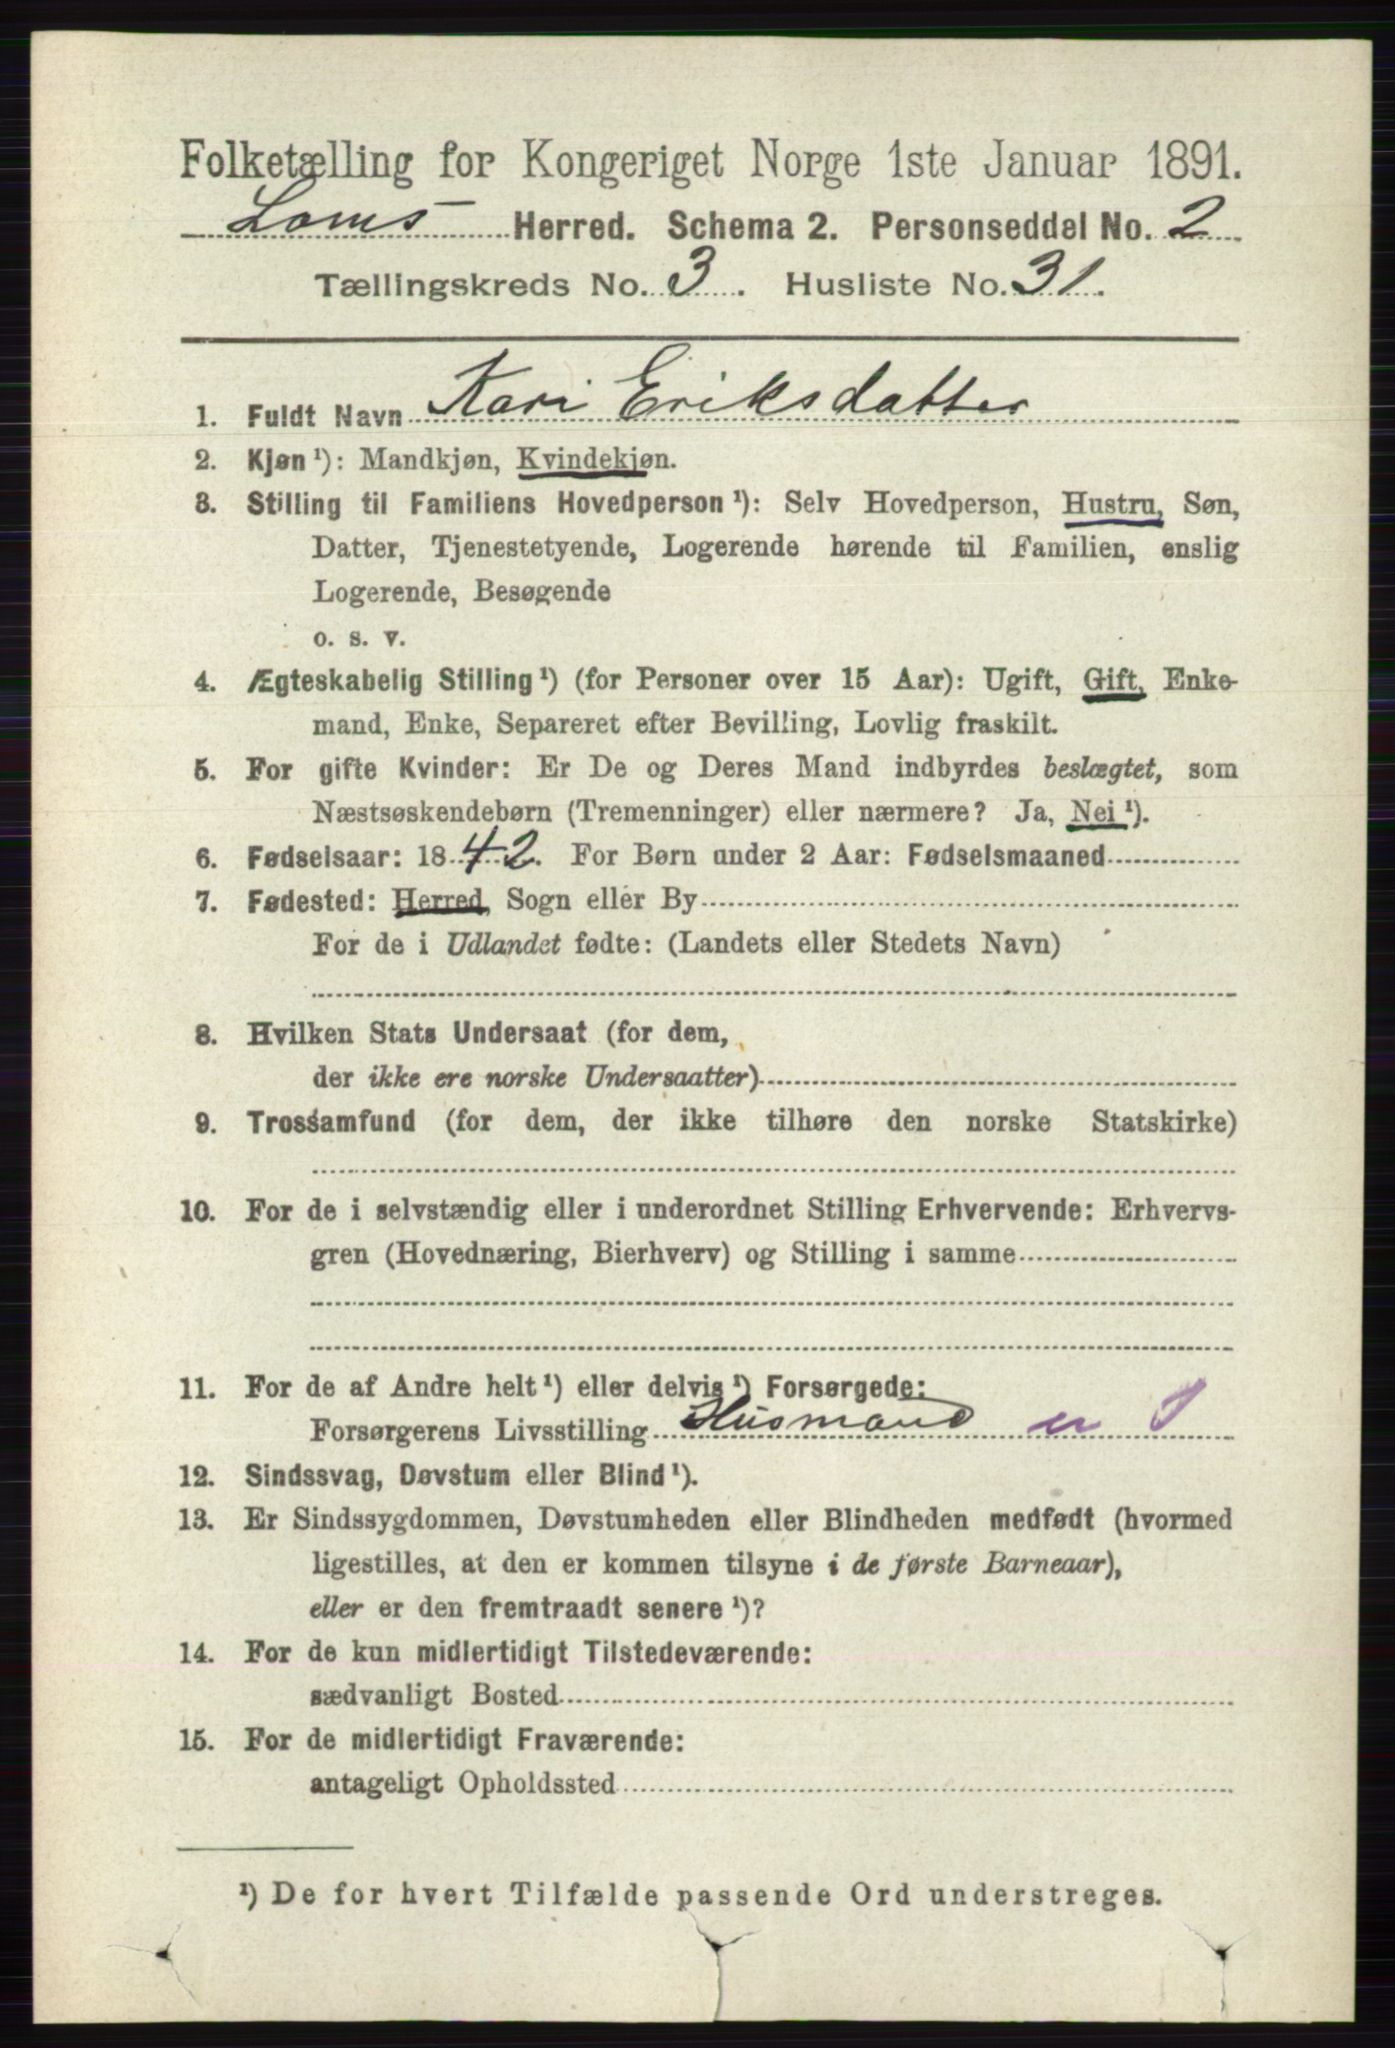 Folketælling for Kongeriget Norge 1ste Januar 1891.
Loms Herred. Schema 2. Personseddel No. 2
Tællingskreds No. 3. Husliste No. 31.
1. Fuldt Navn Kari Eriksdatter
2. Kjøn ¹): Mandkjøn, Kvindekjøn.
3. Stilling til Familiens Hovedperson ¹): Selv Hovedperson, Hustru, Søn,
Datter, Tjenestetyende, Logerende hørende til Familien, enslig
Logerende, Besøgende
o. s. v.
4. Ægteskabelig Stilling ¹) (for Personer over 15 Aar): Ugift, Gift, Enke-
mand, Enke, Separeret efter Bevilling, Lovlig fraskilt.
5. For gifte Kvinder: Er De og Deres Mand indbyrdes beslægtet, som
Næstsøskendebørn (Tremenninger) eller nærmere? Ja, Nei ¹).
6. Fødselsaar: 1842. For Børn under 2 Aar: Fødselsmaaned
7. Fødested: Herred, Sogn eller By
For de i Udlandet fødte: (Landets eller Stedets Navn)
8. Hvilken Stats Undersaat (for dem,
der ikke ere norske Undersaatter)
9. Trossamfund (for dem, der ikke tilhøre den norske Statskirke)
10. For de i selvstændig eller i underordnet Stilling Erhvervende: Erhvervs-
gren (Hovednæring, Bierhverv) og Stilling i samme
11. For de af Andre helt ¹) eller delvis ¹) Forsørgede:
Forsørgerens Livsstilling Husmand
12. Sindssvag, Døvstum eller Blind ¹).
13. Er Sindssygdommen, Døvstumheden eller Blindheden medfødt (hvormed
ligestilles, at den er kommen tilsyne i de første Barneaar),
eller er den fremtraadt senere ¹)?
14. For de kun midlertidigt Tilstedeværende:
sædvanligt Bosted
15. For de midlertidigt Fraværende:
antageligt Opholdssted
¹) De for hvert Tilfælde passende Ord understreges.